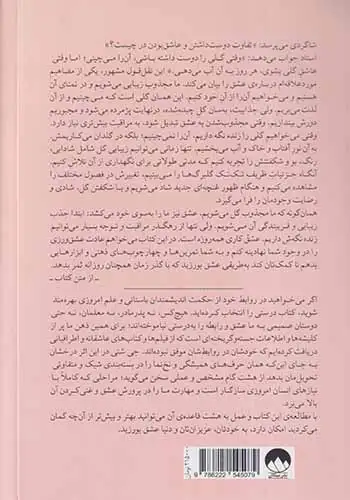 شاگردی می‌پرسد: «تفاوت دوست‌داشتن و عاشق‌بودن در چیست؟»
استاد جواب می‌دهد: «وقتی گلی را دوست داشته باشی، آن‌را می‌چینی؛ اما وقتی
عاشق گلی بشوی، هر روز به آن آب می‌دهی.» این نقل‌قول مشهور، یکی از مفاهیم
موردعلاقه‌ام درباره‌ی عشق را بیان می‌کند. ما مجذوب زیبایی می‌شویم و در تمنای آن
هستیم و می‌خواهیم آن‌را از آن خود کنیم. این همان گلی است که می‌چینیم و از آن
لذت می‌بریم. ولی جذابیت، به‌سان گل چیده‌شده، درنهایت پژمرده می‌شود و مجبوریم
دورش بیندازیم. وقتی مجذوب‌شدن به عشق تبدیل شود، به مراقبت بیش‌تری نیاز دارد.
وقتی می‌خواهیم گلی را زنده نگه داریم، آن‌را نمی‌چینیم؛ بلکه در گلدان می‌کاریمش،
به آن نور آفتاب و خاک و آب می‌بخشیم. تنها زمانی می‌توانیم زیبایی گل شامل شادابی،
رنگ، بو و شکفتنش را تجربه کنیم که مدتی طولانی برای نگهداری از آن تلاش کنیم.
آنگاه جزئیات ظریف تک‌تک گلبرگ‌ها را می‌بینیم، تغییرش در فصول مختلف را
مشاهده می‌کنیم و هنگام ظهور غنچه‌ای جدید شاد می‌شویم و با شکفتن گل، شادی و
رضایت وجودمان را فرا می‌گیرد.
همان‌گونه که ما مجذوب گل می‌شویم، عشق نیز ما را به‌سوی خود می‌کشد: ابتدا جذب
زیبایی و فریبندگی آن می‌شویم. ولی تنها از رهگذر مراقبت و توجه بسیار می‌توانیم
زنده نگه‌ش داریم. عشق کاری همه‌روزه است. در این کتاب می‌خواهم عادت عشق‌ورزی
را در وجود شما نهادینه کنم و به شما تمرین‌ها و چهارچوب‌های ذهنی و ابزارهایی
بدهم تا کمک‌تان کند به‌طریقی عشق بورزید که با گذر زمان همچنان روزانه ثمر بدهد.
- از متن کتاب -
اگر می‌خواهید در روابط خود از حکمت اندیشمندان باستانی و علم امروزی بهره‌مند
شوید، کتاب درستی را انتخاب کرده‌اید. هیچ‌کس، نه پدرمادر، نه معلمان، نه حتی
دوستان صمیمی به ما عشق و رابطه را به‌درستی نیاموخته‌اند؛ برای همین ذهن ما پر از
کلیشه‌ها و اطلاعات جسته‌وگریخته‌ای است که از فیلم‌ها و کتاب‌های عاشقانه و اطرافیانی
دریافت کرده‌ایم که خودشان در روابط‌شان موفق نبوده‌اند. جی شتی در این اثر درخشان
به جای این‌که همان حرف‌های همیشگی و نخ‌نما را در بسته‌بندی شیک و متفاوتی
تحویل‌مان بدهد از هشت گام مشخص و عملی سخن می‌گوید؛ مراحلی که کاملاً با
نیازهای انسان امروزی سازگار است و مهارت ما را در پرورش عشق و غنی‌کردن آن
بالا می‌برد.
با مطالعه‌ی این کتاب و عمل به هشت قاعده‌ی آن می‌توانید بهتر و بیش‌تر از آن‌چه گمان
می‌کردید امکان دارد، به خودتان، عزیزان‌تان و دنیا عشق بورزید.
9 786222 545079